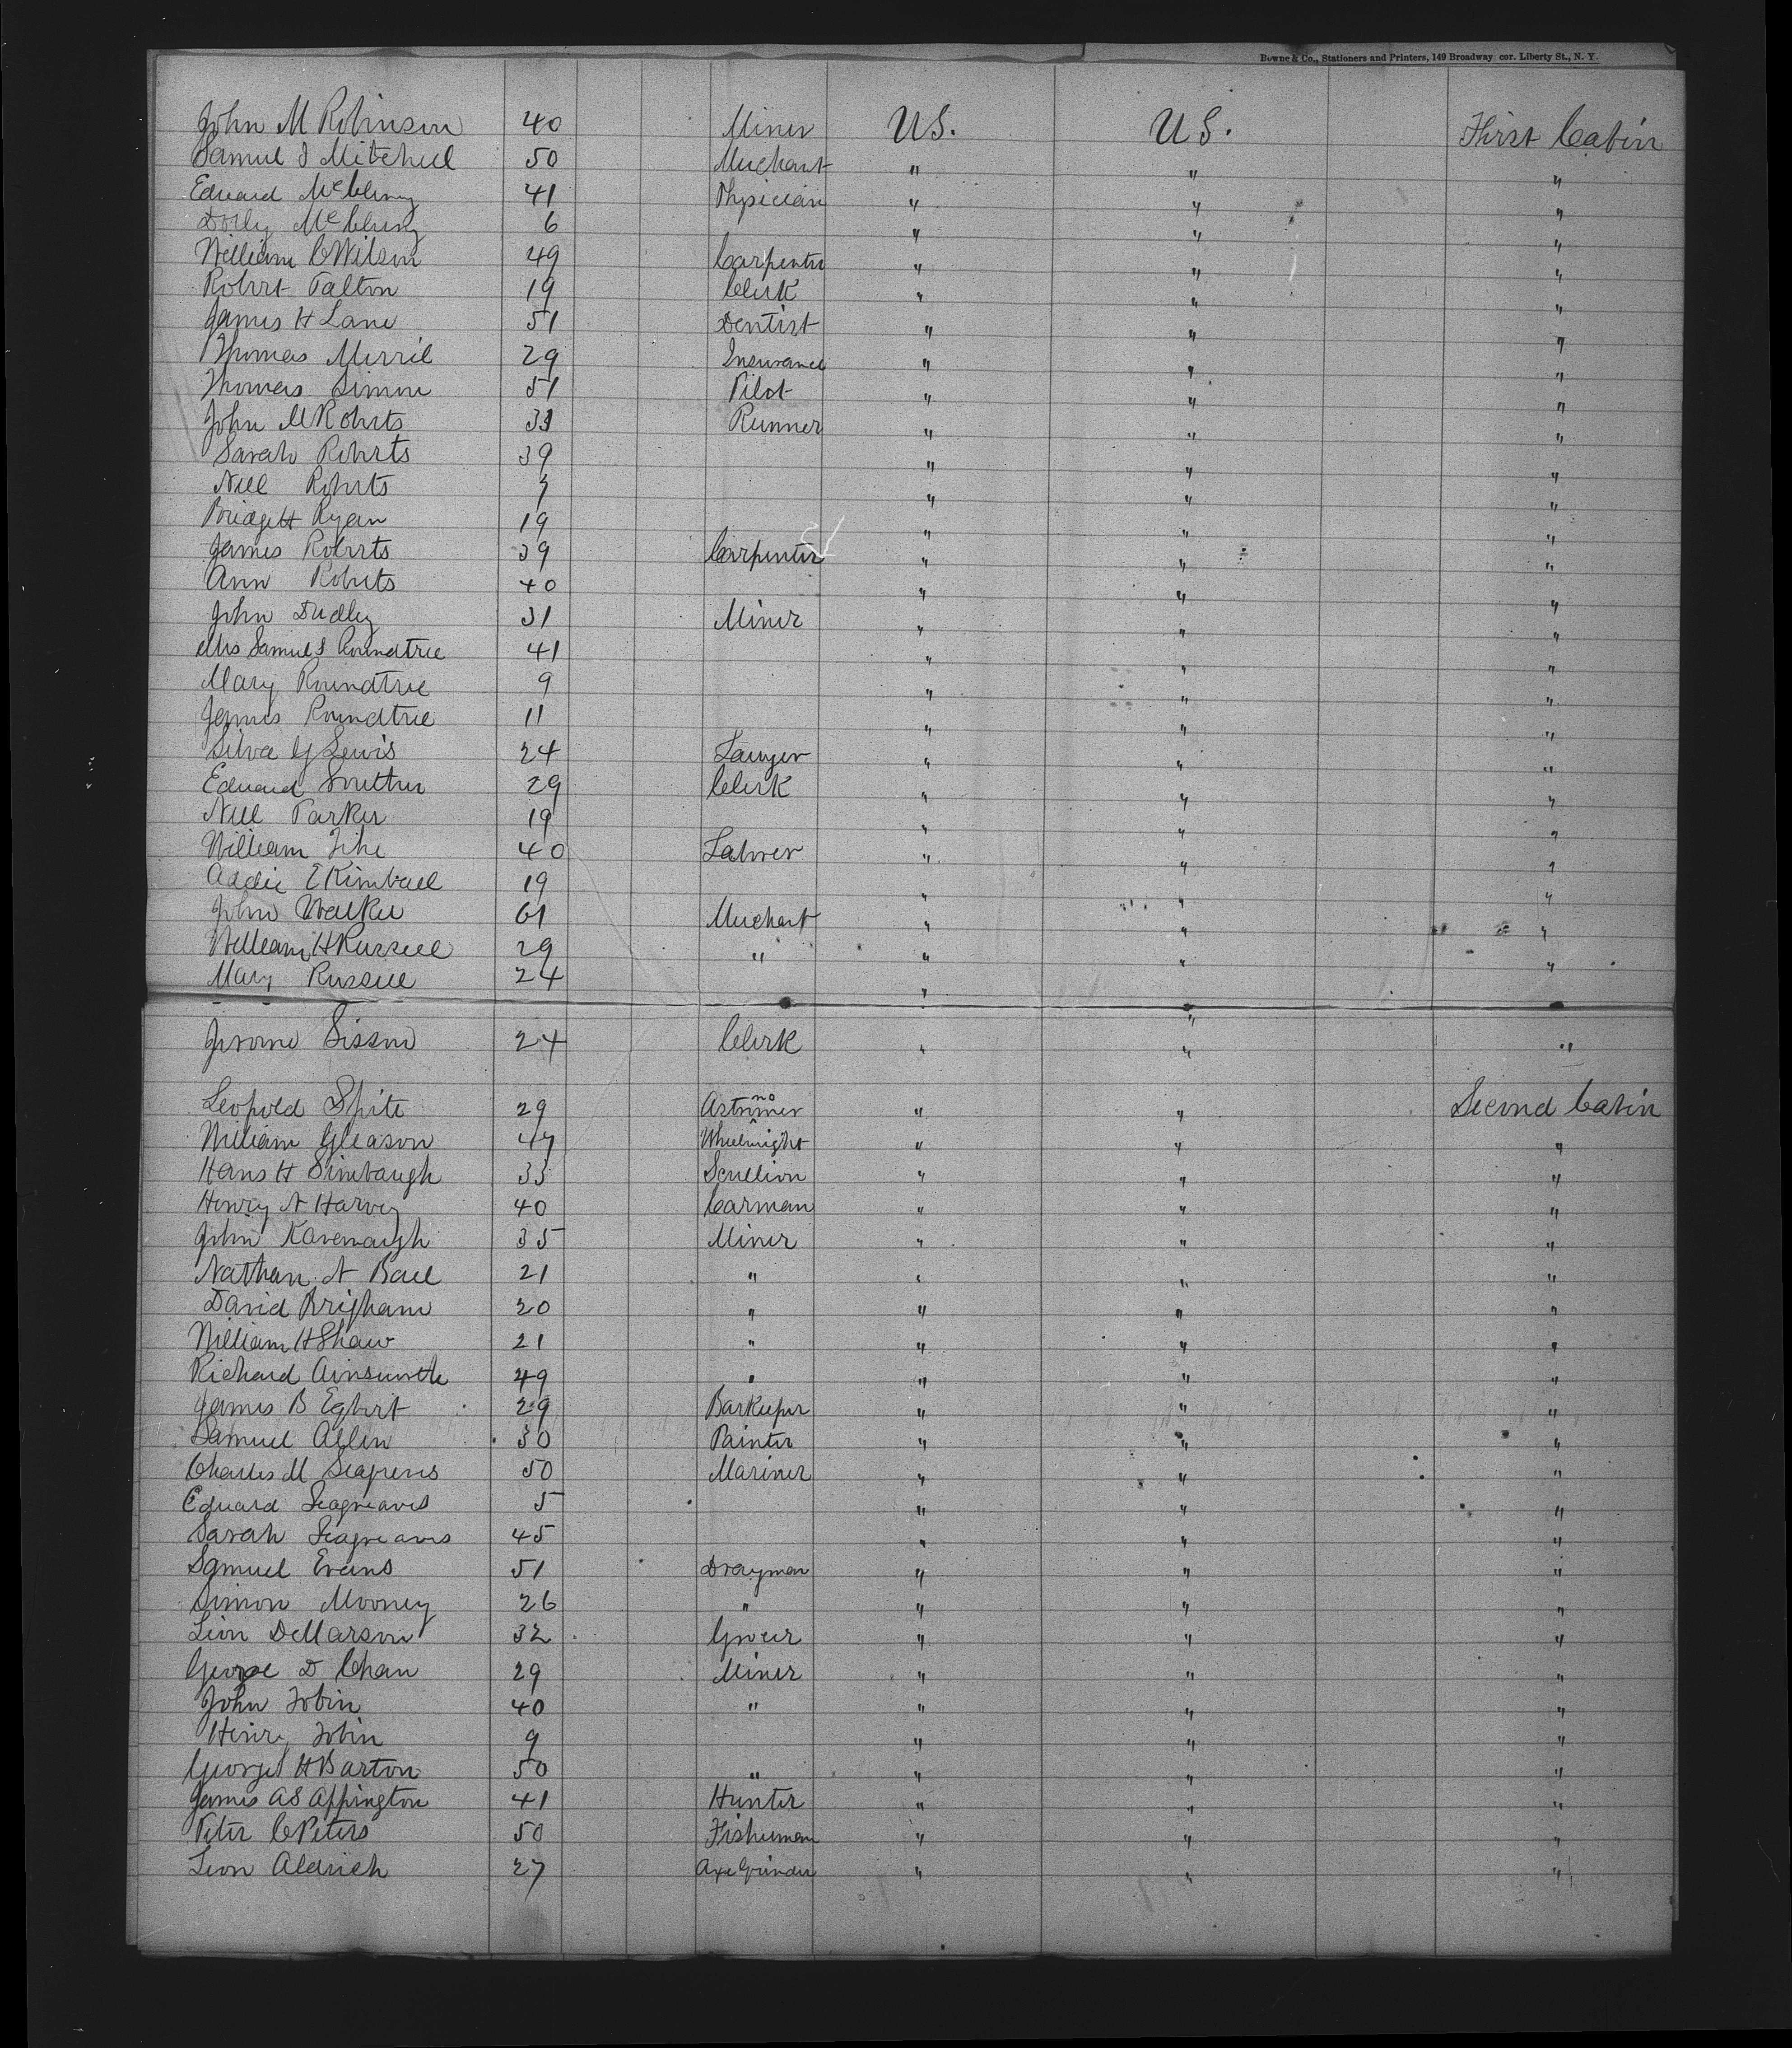 Bowne & Co., Stationers and Printers, 149 Broadway cor. Liberty St., N. Y.
John M Robinson 40 Miner U S. U S. First Cabin
Samuel J Mitchell 50 Merchant " " "
Edward McClung 41 Physician " " "
Dolly McClung 6 " " "
William C Wilson 49 Carpenter " " "
Robert Falton 19 Clerk " " "
James H Lane 51 Dentist " " "
Thomas Merril 29 Insurance " " "
Thomas Simon 51 Pilot " " "
John M Roberts 33 Runner " " "
Sarah Roberts 39 " " "
Nell Roberts 7 " " "
Bridgett Ryan 19 " " "
James Roberts 39 Carpenter " " "
Ann Roberts 40 " " "
John Dudley 31 Miner " " "
Mrs Samuel S Roundtree 41 " " "
Mary Roundtree 9 " " "
James Roundtree 11 " " "
Silva G Lewis 24 Lawyer " " "
Edward Souther 29 Clerk " " "
Nell Parker 19 " " "
William 40 Laborer " " "
Addie E Kimball 19 " " "
John Walker 61 Merchant " " "
William H Russell 29 " " " "
Mary Russell 24 " " "
Jerome Sisson 24 Clerk " " "
Leopold Spite 29 Astronomer " " Second Cabin
William Gleason 47 Wheelwright " " "
Hans H Simbaugh 33 Scullion " " "
Henry N Harvey 40 Carman " " "
John Kavenaugh 35 Miner " " "
Nathan N Ball 21 " " " "
David Brigham 20 " " " "
William H Shaw 21 " " " "
Richard Ainsworth 49 " " " "
James B Egbert 29 Barkeeper " " "
Samuel Allen 30 Painter " " "
Charles M Seagreves 50 Mariner " " "
Edward Seagreaves 5 " " "
Sarah Seagreaves 45 " " "
Samuel Evans 51 Drayman " " "
Simon Mooney 26 " " " "
Leon DeMarson 32 Grocer " " "
George D Chan 29 Miner " " "
John Tobin 40 " " " "
Henry Tobin 9 " " "
George H Barton 50 " " " "
James A S Appington 41 Hunter " " "
Peter C Peters 50 Fisherman " " "
Leon Aldrich 27 Axe Grinder " " "